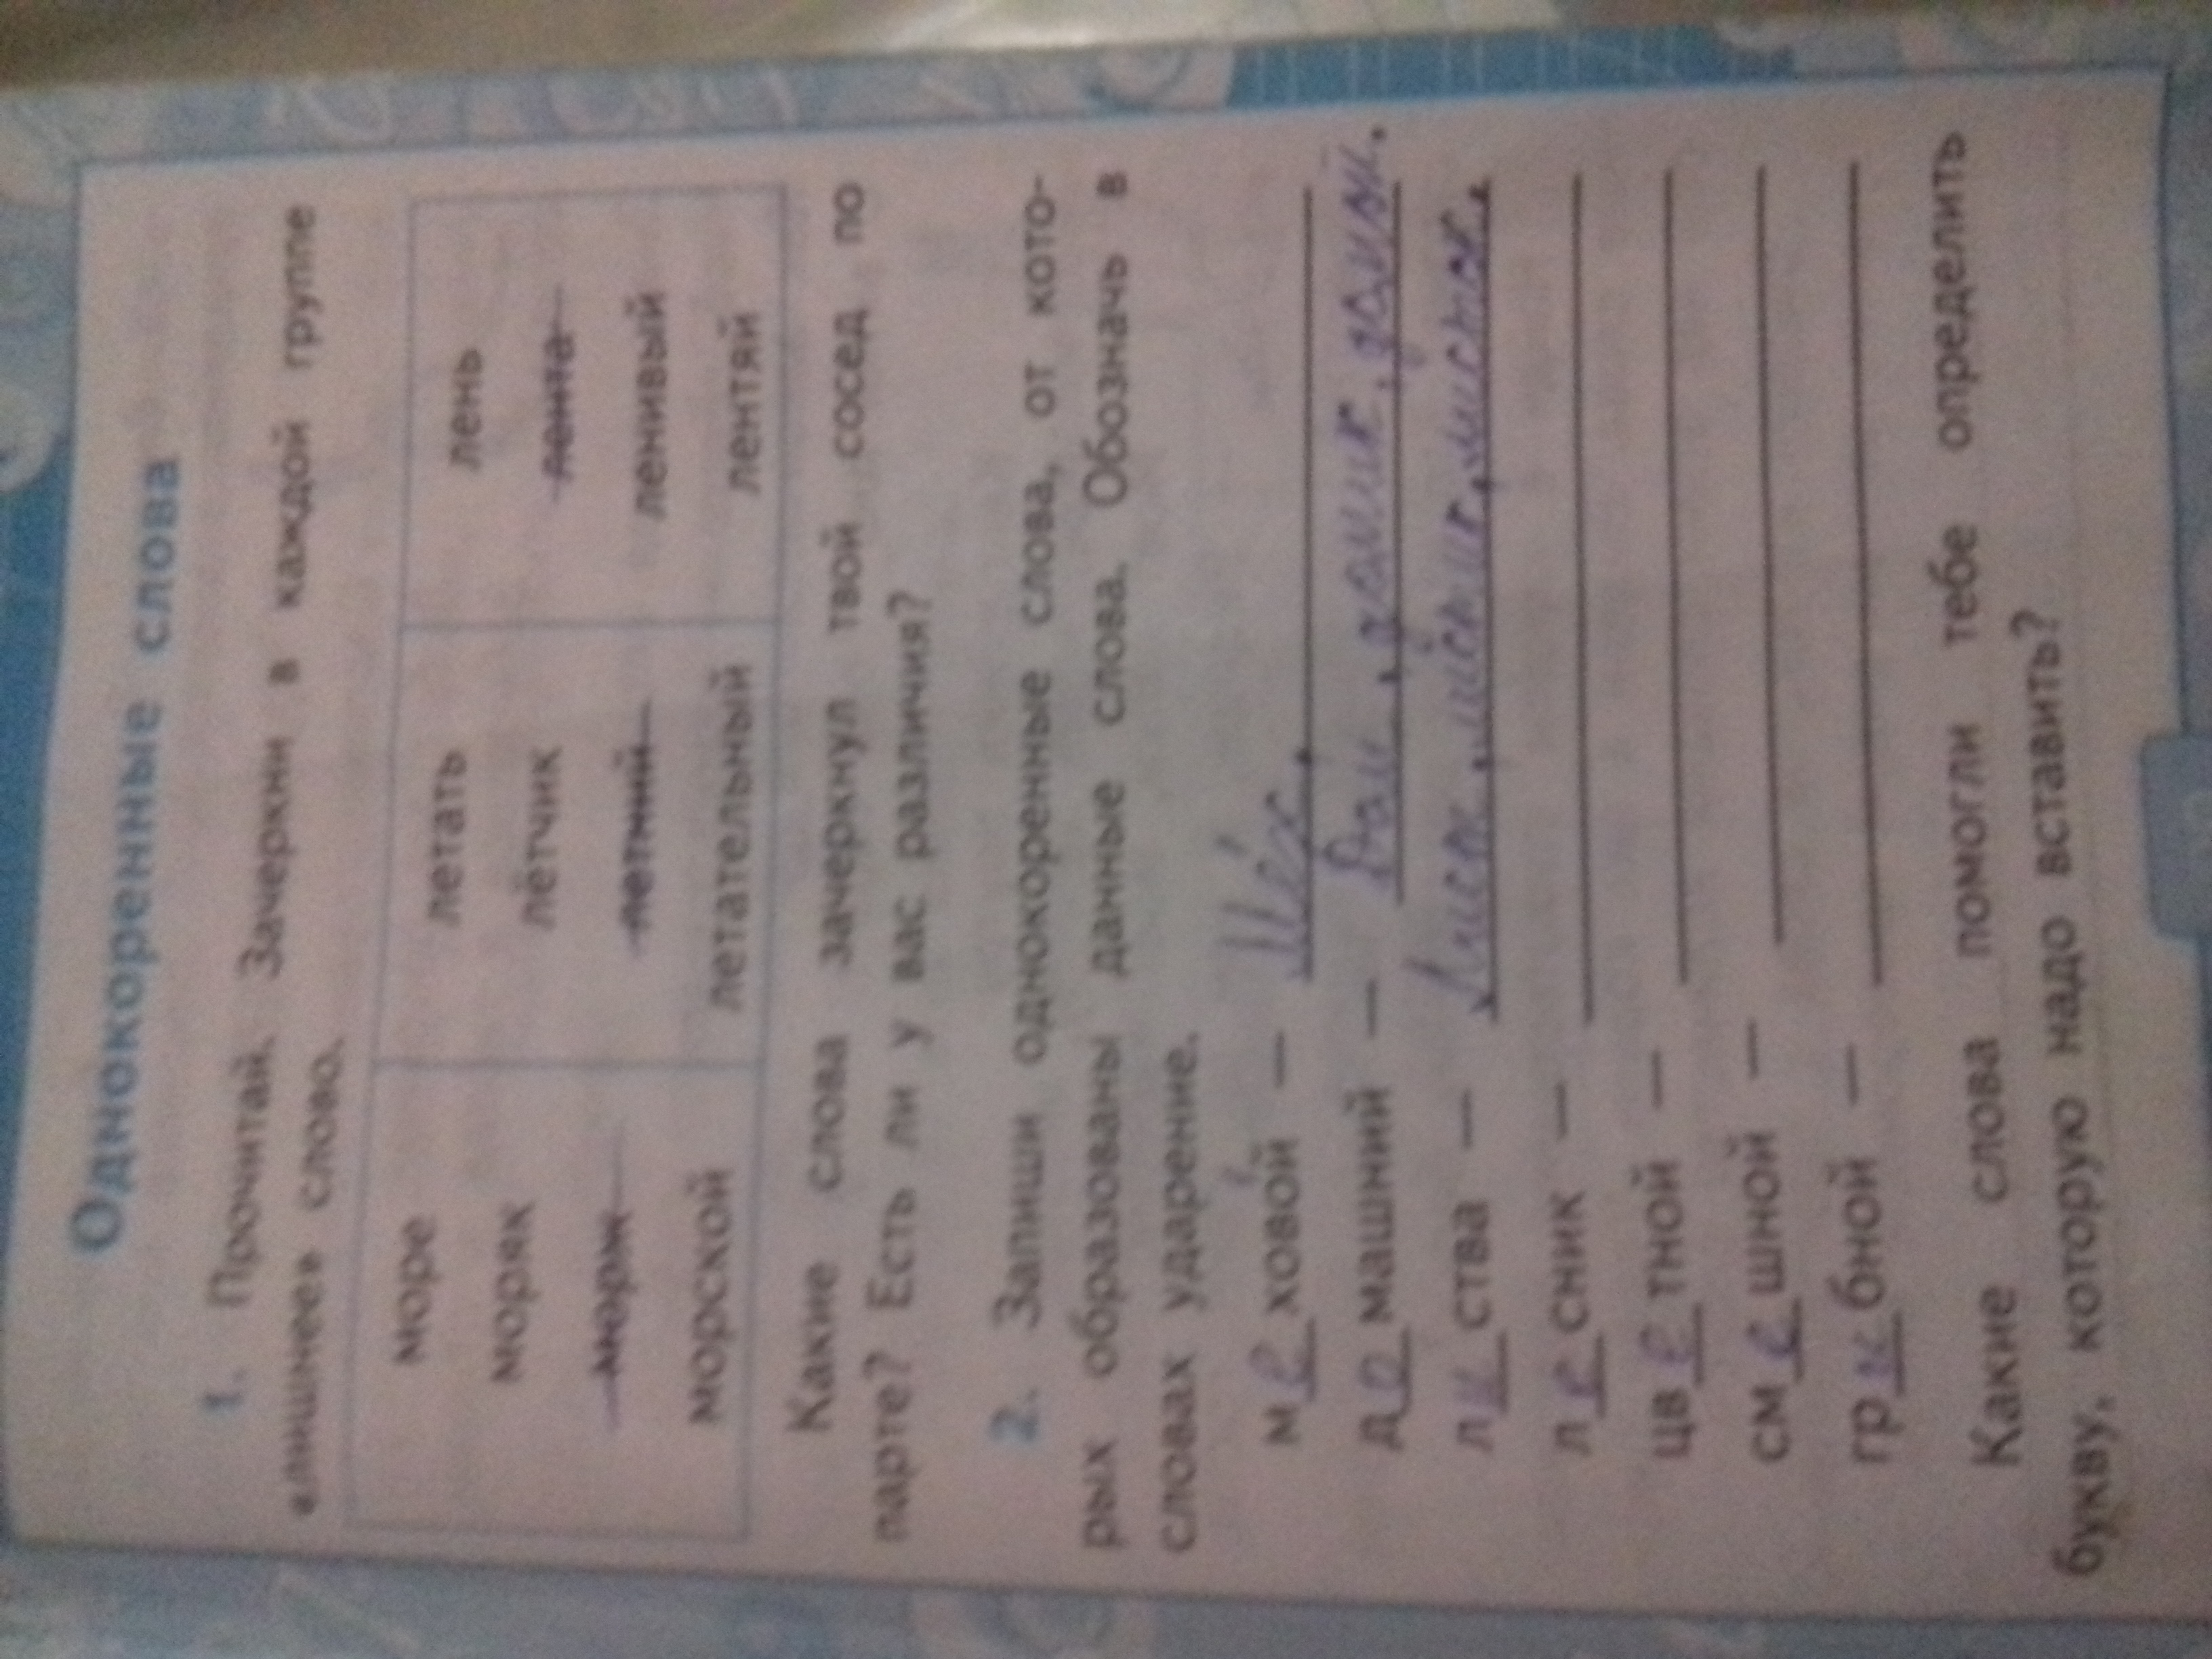 Однокоренные слова
1. Прочитай. Зачеркни в каждой группе
«лишнее» слово.
море летать лень
моряк лётчик лента
морж летний ленивый
морской летательный лентяй
Какие слова зачеркнул твой сосед по
парте? Есть ли у вас различия?
2. Запиши однокоренные слова, от кото-
рых образованы данные слова. Обозначь в
словах ударение.
меховой — Мех.
домашний — Дом, домик,
листва — Лист, листик, листок.
лесник —
цветной —
смешной —
грибной —
Какие слова помогли тебе определить
букву, которую надо вставить?